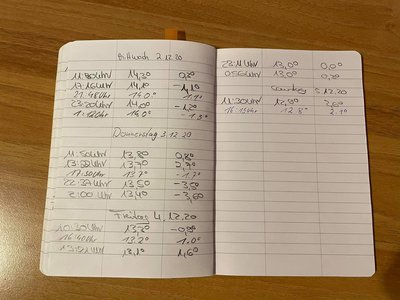 Mittwoch 2.12.20
17:16 Uhr 14,1° -1,1°
21:48 Uhr 14,0° -1,1°
23:20 Uhr 14,0° -1,2°
1:12 Uhr 14,0° -1,3°
Donnerstag 3.12.20
11:50 Uhr 13,8° 0,8°
13:55 Uhr 13,7° 2,7°
17:50 Uhr 13,7° -1,7°
22:37 Uhr 13,5° -3,5°
2:00 Uhr 13,4° -3,6°
Freitag 4.12.20
10:30 Uhr 13,3° -0,9°
16:40 Uhr 13,2° 1,0°
13,1° 1,6°
23:11 Uhr 13,0° 0,0°
0:56 Uhr 13,0° 0,2°
Samstag 5.12.20
11:30 Uhr 12,9° 2,0°
12,8° 2,1°